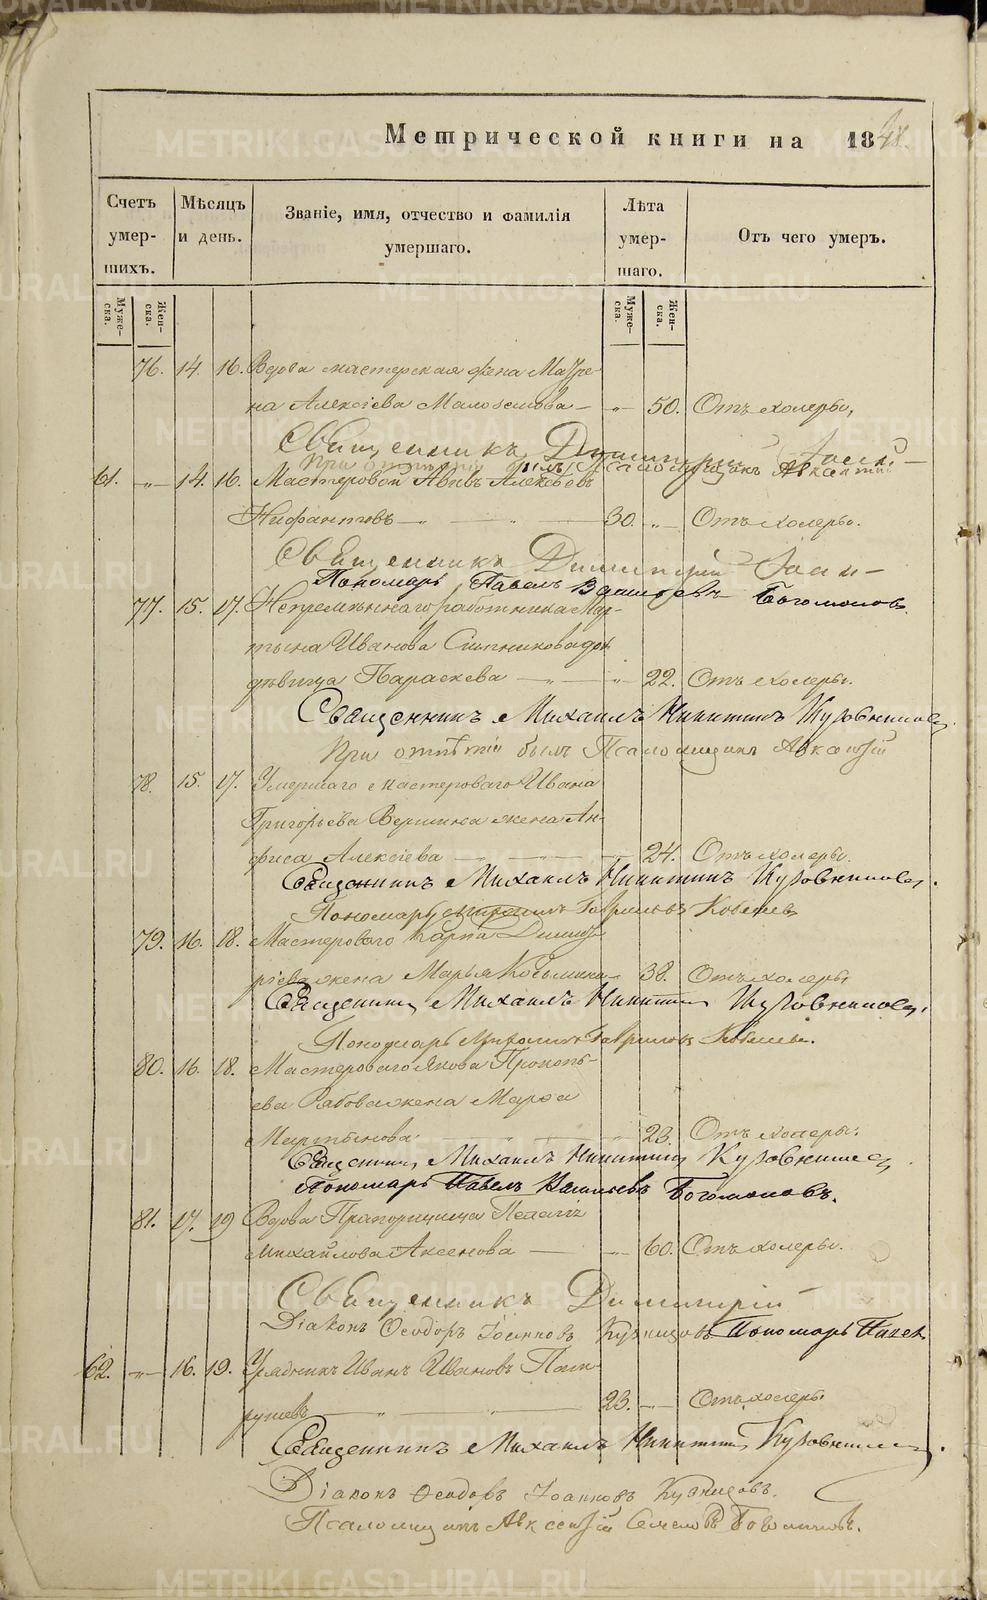 Метрической книги на 1848.
Счетъ умер-шихъ.
Мѣсяцъ и день.
Званіе, имя, отчество и фамилія умершаго.
Лѣта умер-шаго.
Отъ чего умеръ.
Муже-ска.
Жен-ска.
Муже-ска.
Жен-ска.
76. 14. 16. Вдова мастерская жена Матре-
на Алексіева Малоземова — „— 50. Отъ холеры,
Священникъ Димитрій
При отпѣтіи былъ Псаломщикъ Авксентій
61. „— 14. 16. Мастеровой Алексѣевъ
Нифантовъ — „ — „ — 30. „— Отъ холеры.
Священникъ Димитрій
Пономарь Павелъ Васильевъ Богомоловъ
77. 15. 17. Непремѣннаго работника Мар-
тына Иванова Ситникова до-
дѣвица Параскева — „ — „ 22. Отъ холеры.
Священникъ Михаилъ Никитинъ Кузовниковъ.
При отпѣтіи былъ Псаломщикъ Авксентій
78. 15. 17. Умершаго мастероваго Ивана
Григорьева Вершина жена Ан-
фиса Алексіева — — — 24. Отъ холеры.
Священникъ Михаилъ Никитинъ Кузовниковъ.
Пономарь Гавриловъ
79. 16. 18. Мастероваго Карпа Димит-
ріева жена Марья Козьмина — 38. Отъ холеры
Священникъ Михаилъ Никитинъ Кузовниковъ.
Пономарь Гавриловъ
80. 16. 18. Мастероваго Якова Прокопь-
ева Рябова жена Марѳа
Мартынова — „ — 23. Отъ холеры.
Священникъ Михаилъ Никитинъ Кузовниковъ
Пономарь Павелъ Васильевъ Богомоловъ.
81. 17. 19 Вдова Прапорщица Пелагія
Михайлова Аксенова — „— 60. Отъ холеры.
Священникъ Димитрій
Діаконъ Ѳеодоръ Іоанновъ Кузнецовъ Пономарь Павел
62. „— 16. 19. Урядникъ Иванъ Ивановъ Пат-
рушевъ — „ — „ — 23. „— Отъ холеры.
Священникъ Михаилъ Никитинъ Кузовниковъ.
Діаконъ Ѳеодоръ Іоанновъ Кузнецовъ.
Псаломщикъ Авксентій Богомоловъ.
METRIKI.GASO-URAL.RU